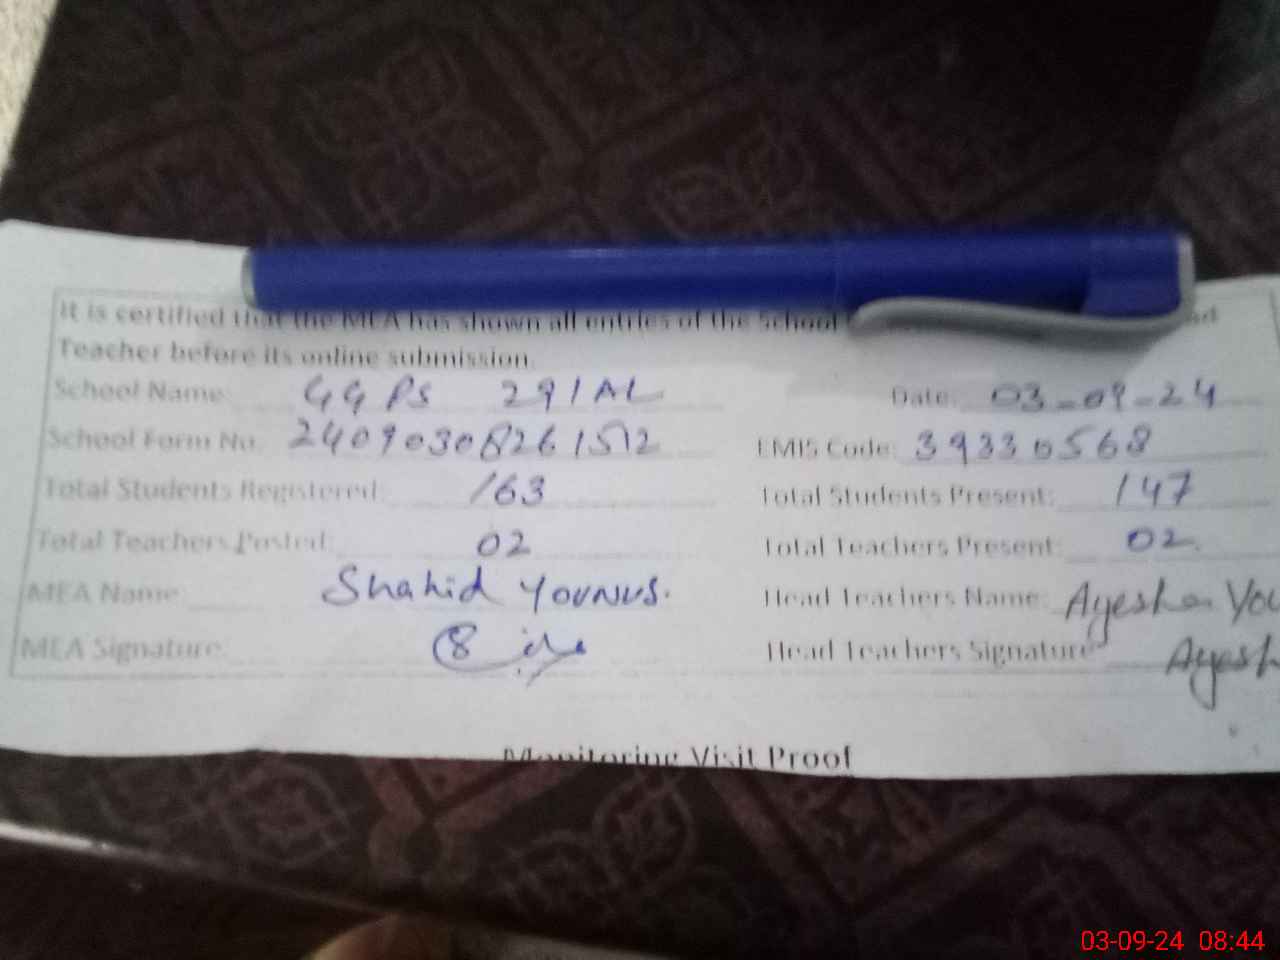 It is certified that the MEA has shown all entries of the School
Teacher before its online submission.
School Name: GGPS 291AL Date: 03-09-24
School Form No. EMIS Code: 39330568
Total Students Registered: 163 Total Students Present: 147
Total Teachers Posted: 02 Total Teachers Present: 02
MEA Name: Shahid Younus. Head Teachers Name: Ayesha You
MEA Signature: Head Teachers Signature Ayesh
Monitoring Visit Proof
03-09-24 08:44